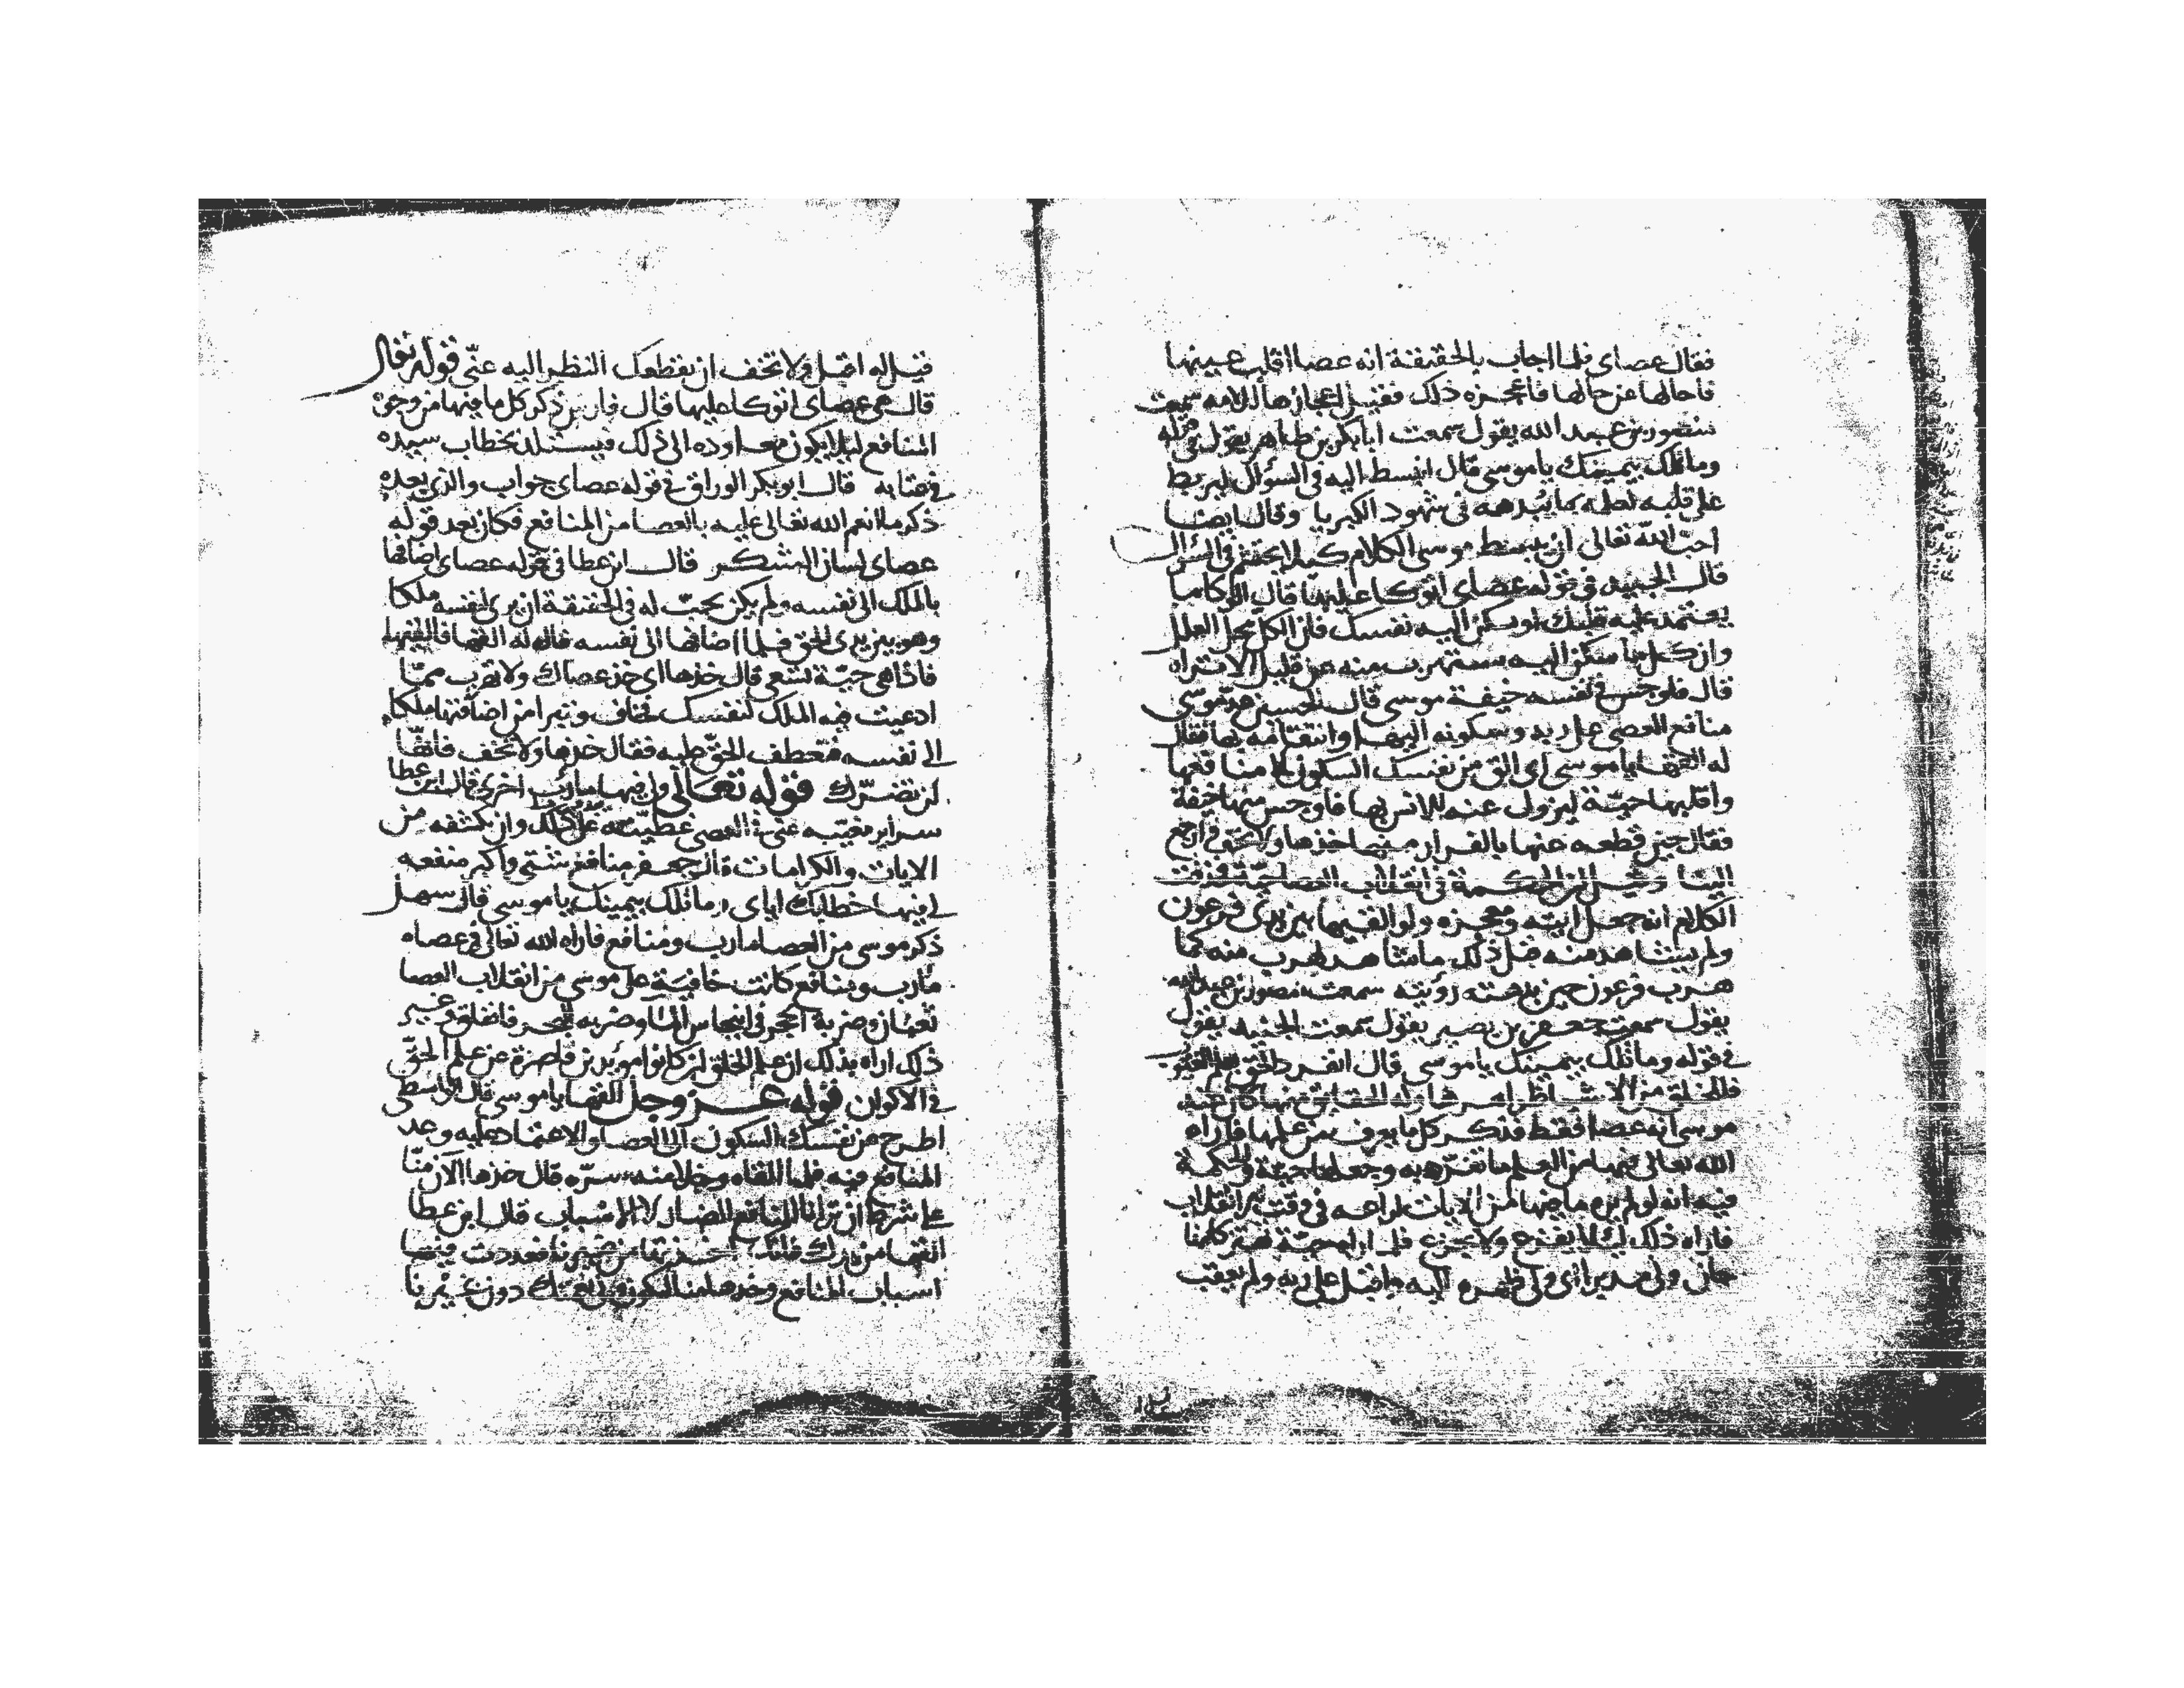 فقال عصاى فلما اجاب بالحقيقة انه عصا اقلب عينها
فاحالها عن حالها فاعجزه ذلك فقيل اعجازها لامه سمعت
منصور بن عبد الله يقول سمعت ابا بكر بن طاهر يقول فى قوله
وما تلك بيمينك يا موسى قال انبسط اليه فى السؤال ليربط
على قلبه لعلمه بما يبدهه فى شهود الكبريا وقال ايضا
احب الله تعالى ان يبسط موسى الكلام كيلا يحتشم فى السؤال
قال الجنيد فى قوله عصاى اتوكا عليها قال الق كلما
يعتمد عليه قلبك او سكن اليه نفسك فان الكل محل العلل
وان كل ما سكن اليه ستهرب منه عن قليل الا تراه
قال فاوجس فى نفسه خيفة موسى قال الحسين عد موسى
منافع العصى على ربه وسكونه اليها وانتفاعه بها فقال
له القها يا موسى اى الق من نفسك السكون الا منافعها
واقلبها حية ليزول عنه الانس بها فاوجس منها خيفة
فقال حين قطعه عنها بالفرار منها خذها ولا تخف وارجع
الينا وقيل ان الحكمة فى انقلاب العصا حية فى وقت
الكلام انه جعل ايته ومعجزه ولو القيها بين يدى فرعون
ولم يشاهد منه قبل ذلك ما شاهد لهرب منه كما
هرب فرعون حين بدهته رؤيته سمعت منصور بن عبد الله
يقول سمعت جعفر بن نصير يقول سمعت الجنيد يقول
فى قوله وما تلك بيمينك يا موسى قال انفرد الحق بعلم الغيوب
فللخلق من الاشيا ظواهرها وله الحقايق منها كان عند
موسى انه عصا فقط فذكر كل ما يعرف من علمها فاراه
الله تعالى فيها من العلم ما تفرد به وجعلها حية والحكمة
فيه انه لو لم يره ما فيها من الايات لراعه فى وقت انقلاب
فاراه ذلك ليلا يفزع ولا يجزع فلما اراه حية تهتز كانها
جان ولى مدبرا اى ولى ظهره اليه واقبل على ربه ولم يعقب
قيل له
قيل له اقبل ولا تخف ان يقطعك النظر اليه عنى قوله تعالى
قال هى عصاى اتوكا عليها قال فارس ذكر كل ما فيها من وجوه
المنافع ليلا يكون معاوده الى ذلك فيستلذ بخطاب سيده
قال ابو بكر الوراق فى قوله عصاى جواب والذى بعده
ذكر ما انعم الله تعالى عليه بالعصا من المنافع فكان بعد قوله
عصاى لسان الشكر قال ابن عطا فى قوله عصاى اضافها
بالملك الى نفسه ولم يكن يجب له فى الحقيقة ان يرى لنفسه ملكا
وهو بين يدى الحق فلما اضافها الى نفسه قال له القها فالقيها
فاذا هى حية تسعى قال خذها اى خذ عصاك ولا تهرب مما
ادعيت فيه الملك لنفسك فخاف وتبرا من اضافتها ملكا
الى نفسه فعطف الحق عليه فقال خذها ولا تخف فانها
لن تضرك قوله تعالى ولى فيها مارب اخرى قال ابن عطا
سراير مغيبه عنى فى العصى وان تكشفه من
الايات والكرامات قال جعفر منافع شتى واكبر منفعه
لى فيها خطابك اياى وما تلك بيمينك يا موسى قال سهل
ذكر موسى من العصا مارب ومنافع فاراه الله تعالى فى عصاه
مارب ومنافع كانت خافية على موسى من انقلاب العصا
ثعبان وضربة الحجر فى انبجاس الما وضربه البحر فانفلق وغير
ذلك اراه بذلك ان علم الخلق ان كانوا مؤيدين قاصرة عن علم الحق
فى الاكوان قوله عز وجل القها يا موسى قال الواسطى
اطرح عن نفسك السكون الى العصا والاعتماد عليه وعد
المنافع فيه فلما القاه وخلا منه سره قال خذها الان منا
على شرط ان ترانا النافع الضار لا الاسباب قال ابن عطا
القها من يدك فانك اخذتها من غيرنا فعددت فيها
اسباب المنافع وخذها منا دون غيرنا